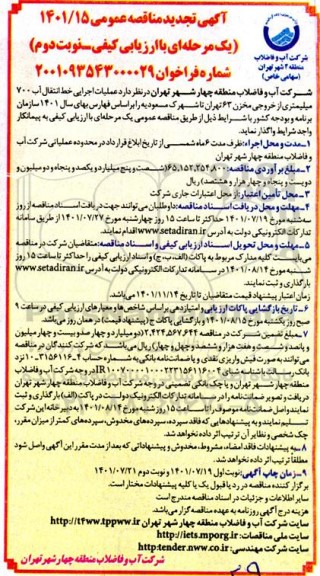 آگهی تجدید مناقصه عمومی ۱۴۰۱/۱۵
(یک مرحله‌ای با ارزیابی کیفی - نوبت دوم)
شماره فراخوان ۲۰۰۱۰۹۳۵۴۳۰۰۰۰۲۹
شرکت آب و فاضلاب
منطقه ۴ شهر تهران
(سهامی خاص)
شرکت آب و فاضلاب منطقه چهار شهر تهران در نظر دارد عملیات اجرایی خط انتقال آب ۷۰۰
میلیمتری از خروجی مخزن ۶۳ تهران تا شهرک سعودیه را براساس فهارس بهای سال ۱۴۰۱ سازمان
برنامه و بودجه کشور با شرایط ذیل از طریق مناقصه عمومی یک مرحله‌ای با ارزیابی کیفی به پیمانکار
واجد شرایط واگذار نماید.
۱-مدت و محل اجراء: ظرف مدت ۶ماه شمسی از تاریخ ابلاغ قرارداد در محدوده عملیاتی شرکت آب
و فاضلاب منطقه چهار شهر تهران
۲-مبلغ برآوردی مناقصه: ۶۵,۱۵۲,۲۵۴,۸۰۰(شصت و پنج میلیارد و یکصد و پنجاه و دو میلیون و
دویست و پنجاه و چهار هزار و هشتصد) ریال
۳-محل تأمین اعتبار: از محل اعتبارات جاری شرکت
۴-مهلت و محل دریافت اسناد مناقصه: داوطلبان می‌توانند جهت دریافت اسناد مناقصه از روز
سه‌شنبه مورخ ۱۴۰۱/۰۷/۱۹ حداکثر تا ساعت ۱۵ روز چهارشنبه مورخ ۱۴۰۱/۰۷/۲۷ از طریق سامانه
تدارکات الکترونیکی دولت به آدرس www.setadiran.ir اقدام نمایند.
۵-مهلت و محل تحویل اسناد ارزیابی کیفی و اسناد مناقصه: متقاضیان شرکت در مناقصه
می‌بایست کلیه مدارک مربوط به پاکات (الف، ب، ج) و اسناد ارزیابی کیفی را حداکثر تا ساعت ۱۵ روز
شنبه مورخ ۱۴۰۱/۰۸/۱۴ در سامانه تدارکات الکترونیکی دولت به آدرس www.setadiran.ir
بارگذاری و ثبت نمایند.
زمان اعتبار پیشنهاد قیمت متقاضیان تا تاریخ ۱۴۰۱/۱۱/۱۴ می‌باشد.
۶-تاریخ بازگشایی پاکات ارزیابی و امتیازدهی براساس شاخص‌ها و معیارهای ارزیابی کیفی در ساعت ۹
صبح روز یکشنبه مورخ ۱۴۰۱/۰۸/۱۵ و بازگشایی پاکات ج (پیشنهاد قیمت) در همان روز می‌باشد.
۷-مبلغ تضمین شرکت در مناقصه ۲,۴۲۴,۵۶۷,۶۴۴(دو میلیارد و چهارصد و بیست و چهار میلیون
و پانصد و شصت و هفت هزار و ششصد و چهل و چهار) ریال می‌باشد که شرکت کنندگان در مناقصه
می‌توانند به صورت فیش واریزی نقدی و یا ضمانت نامه بانکی به شماره حساب
در وجه شرکت آب و فاضلاب
منطقه چهار شهر تهران و یا چک بانکی تضمینی در وجه شرکت آب و فاضلاب منطقه چهار شهر تهران
دریافت و تصویر ضمانت‌نامه را در سامانه تدارکات الکترونیک دولت در پاکت (الف) بارگذاری و ثبت
نمایند و اصل ضمانت‌نامه موصوف را تا ساعت ۱۵ روز شنبه مورخ ۱۴۰۱/۰۸/۱۴ به دبیرخانه این شرکت
تسلیم نمایند و به پیشنهادهایی که فاقد سپرده، سپرده‌های مخدوش، سپرده‌های کمتر از میزان مقرر،
چک شخصی و نظایر آن ترتیب اثر داده نخواهد شد.
۸-به پیشنهادات فاقد امضاء، مشروط، مخدوش و پیشنهاداتی که بعد از مدت مقرر این آگهی واصل شود
مطلقاً ترتیب اثر داده نخواهد شد.
۹-زمان چاپ آگهی: نوبت اول ۱۴۰۱/۰۷/۱۹ و نوبت دوم ۱۴۰۱/۰۷/۲۱
برگزار کننده مناقصه در رد یا قبول یک یا کلیه پیشنهادات مختار است.
سایر اطلاعات و جزئیات در اسناد مناقصه مندرج است
هزینه درج آگهی روزنامه به عهده مناقصه گزار می‌باشد.
سایت شرکت آب و فاضلاب منطقه چهار شهر تهران http://t4ww.tppww.ir
سایت ملی مناقصات: http://iets.mporg.ir
سایت شرکت مهندسی: http:tender.nww.co.ir
شرکت آب و فاضلاب منطقه چهار شهر تهران